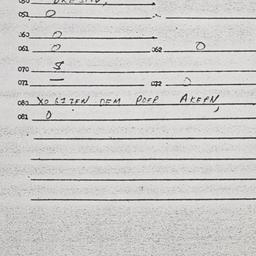 052 0
060 0
061 0 062 0
070 8
071 — 072 0
080 XO GIZEN DEM POEP AKEPN,
081 0